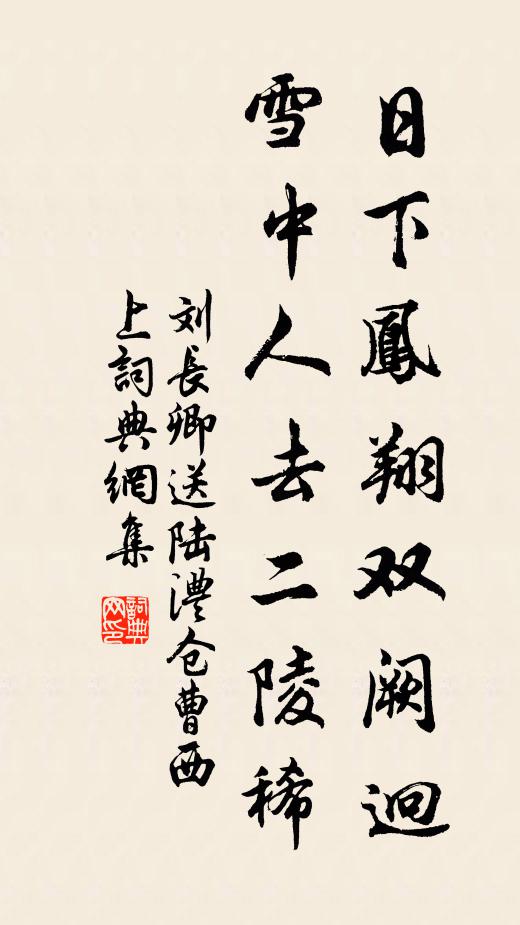 日下鳳翔双阙迥
雪中人去二陵稀
刘長卿送陆澧仓曹西
上詞典網集
詞典网印